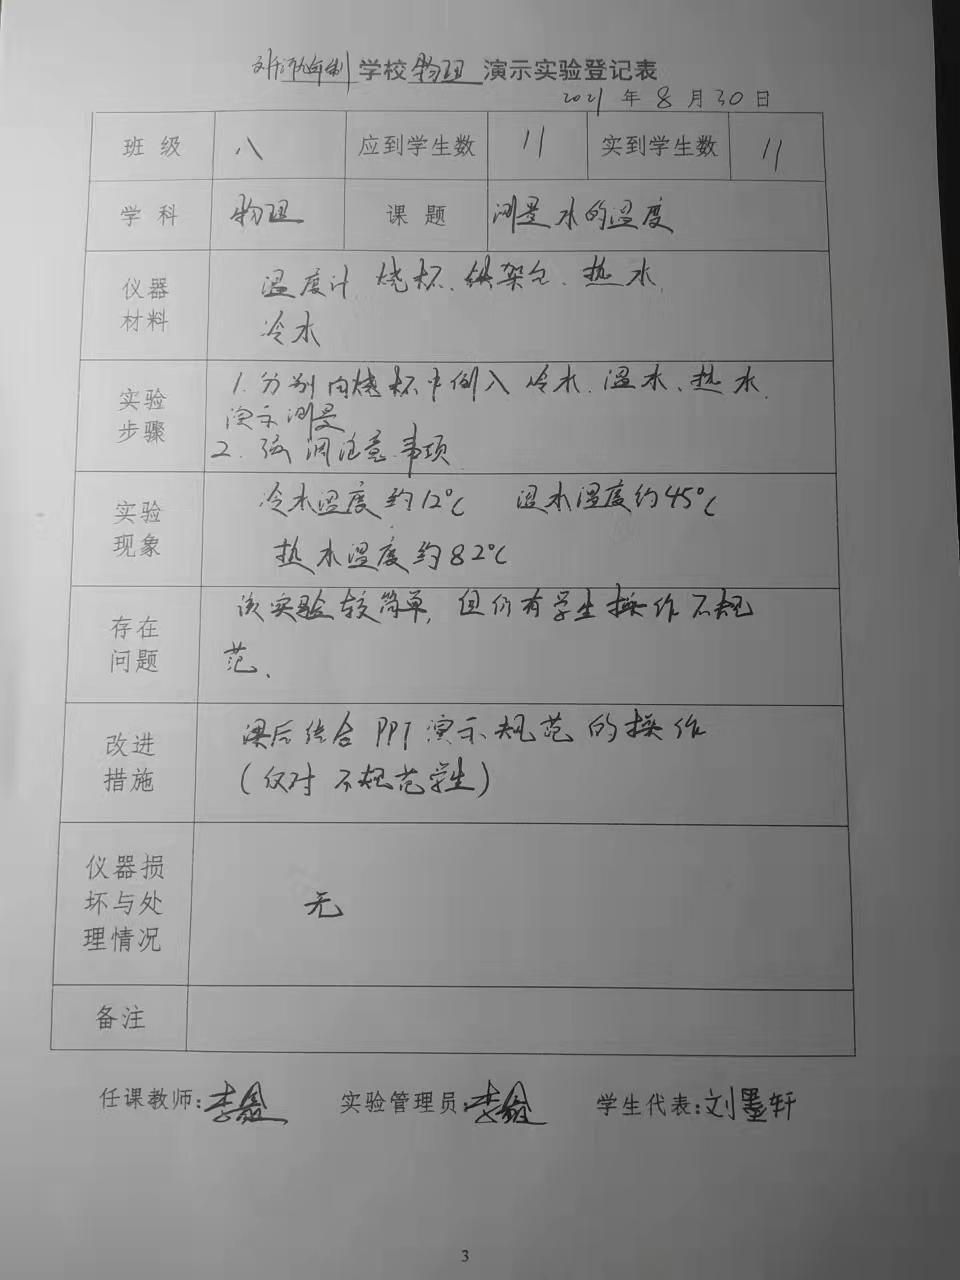 学校物理演示实验登记表
2021年8月30日
班级 八 应到学生数 11 实到学生数 11
学科 物理 课题 测量水的温度
仪器材料 温度计、烧杯、铁架台、热水、
冷水
实验步骤 1.分别向烧杯中倒入冷水、温水、热水、
演示测量
2.强调注意事项
实验现象 冷水温度约12℃ 温水温度约45℃
热水温度约82℃
存在问题 该实验较简单,但仍有学生操作不规
范、
改进措施 课后结合PPT演示规范的操作
(仅对不规范学生)
仪器损坏与处理情况 无
备注
任课教师:李鑫 实验管理员:李鑫 学生代表:刘墨轩
3